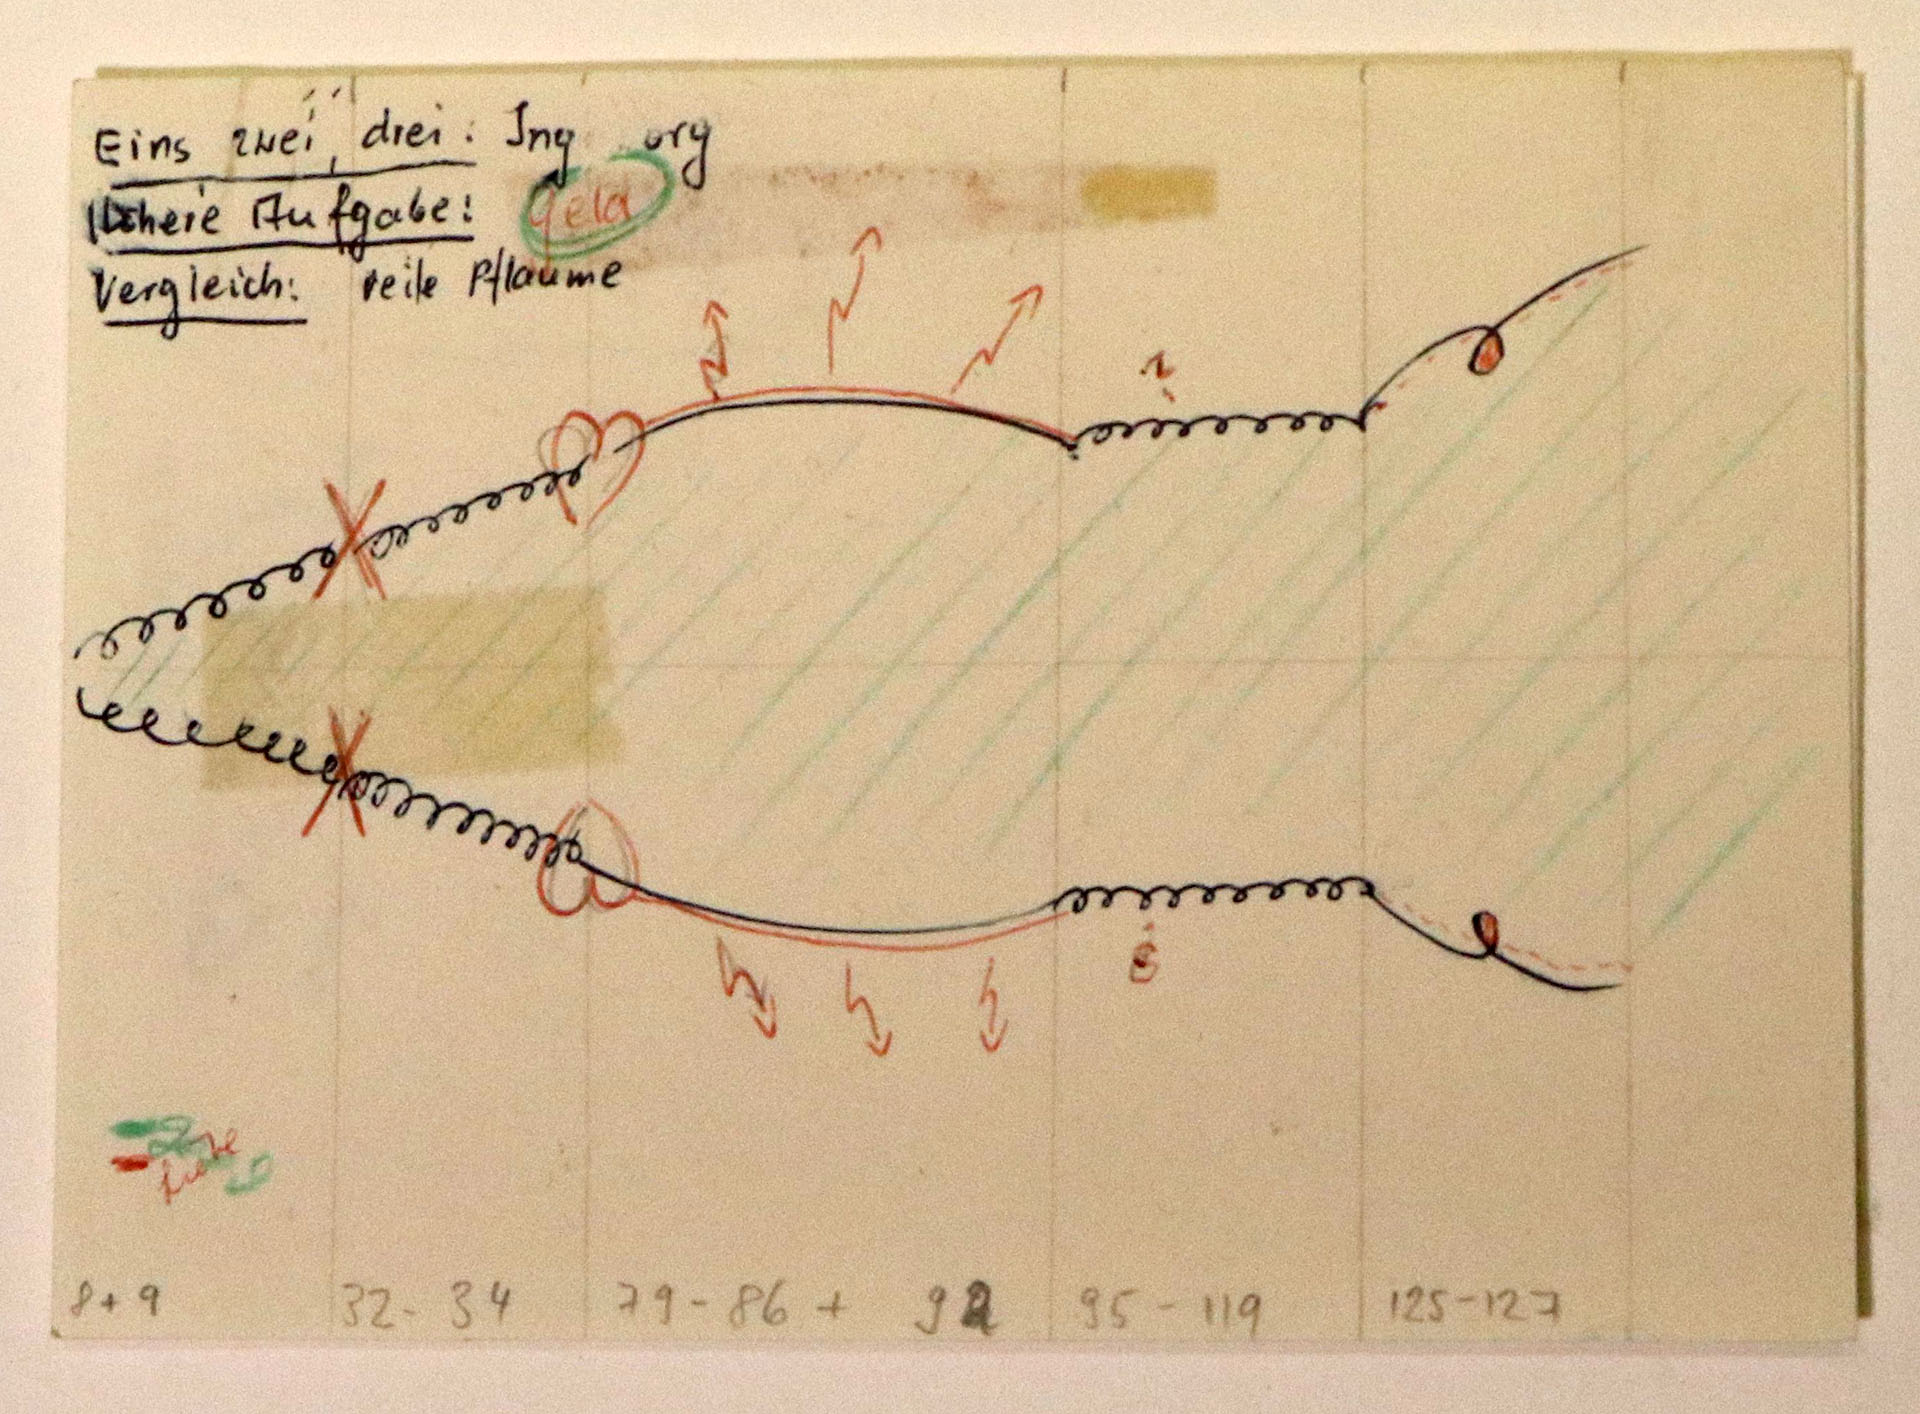 Eins zwei, drei: Ing org
Aufgabe: Geld
Vergleich: reife Pflaume
Liebe
8+9 32-34 79-86 + 92 95-119 125-127